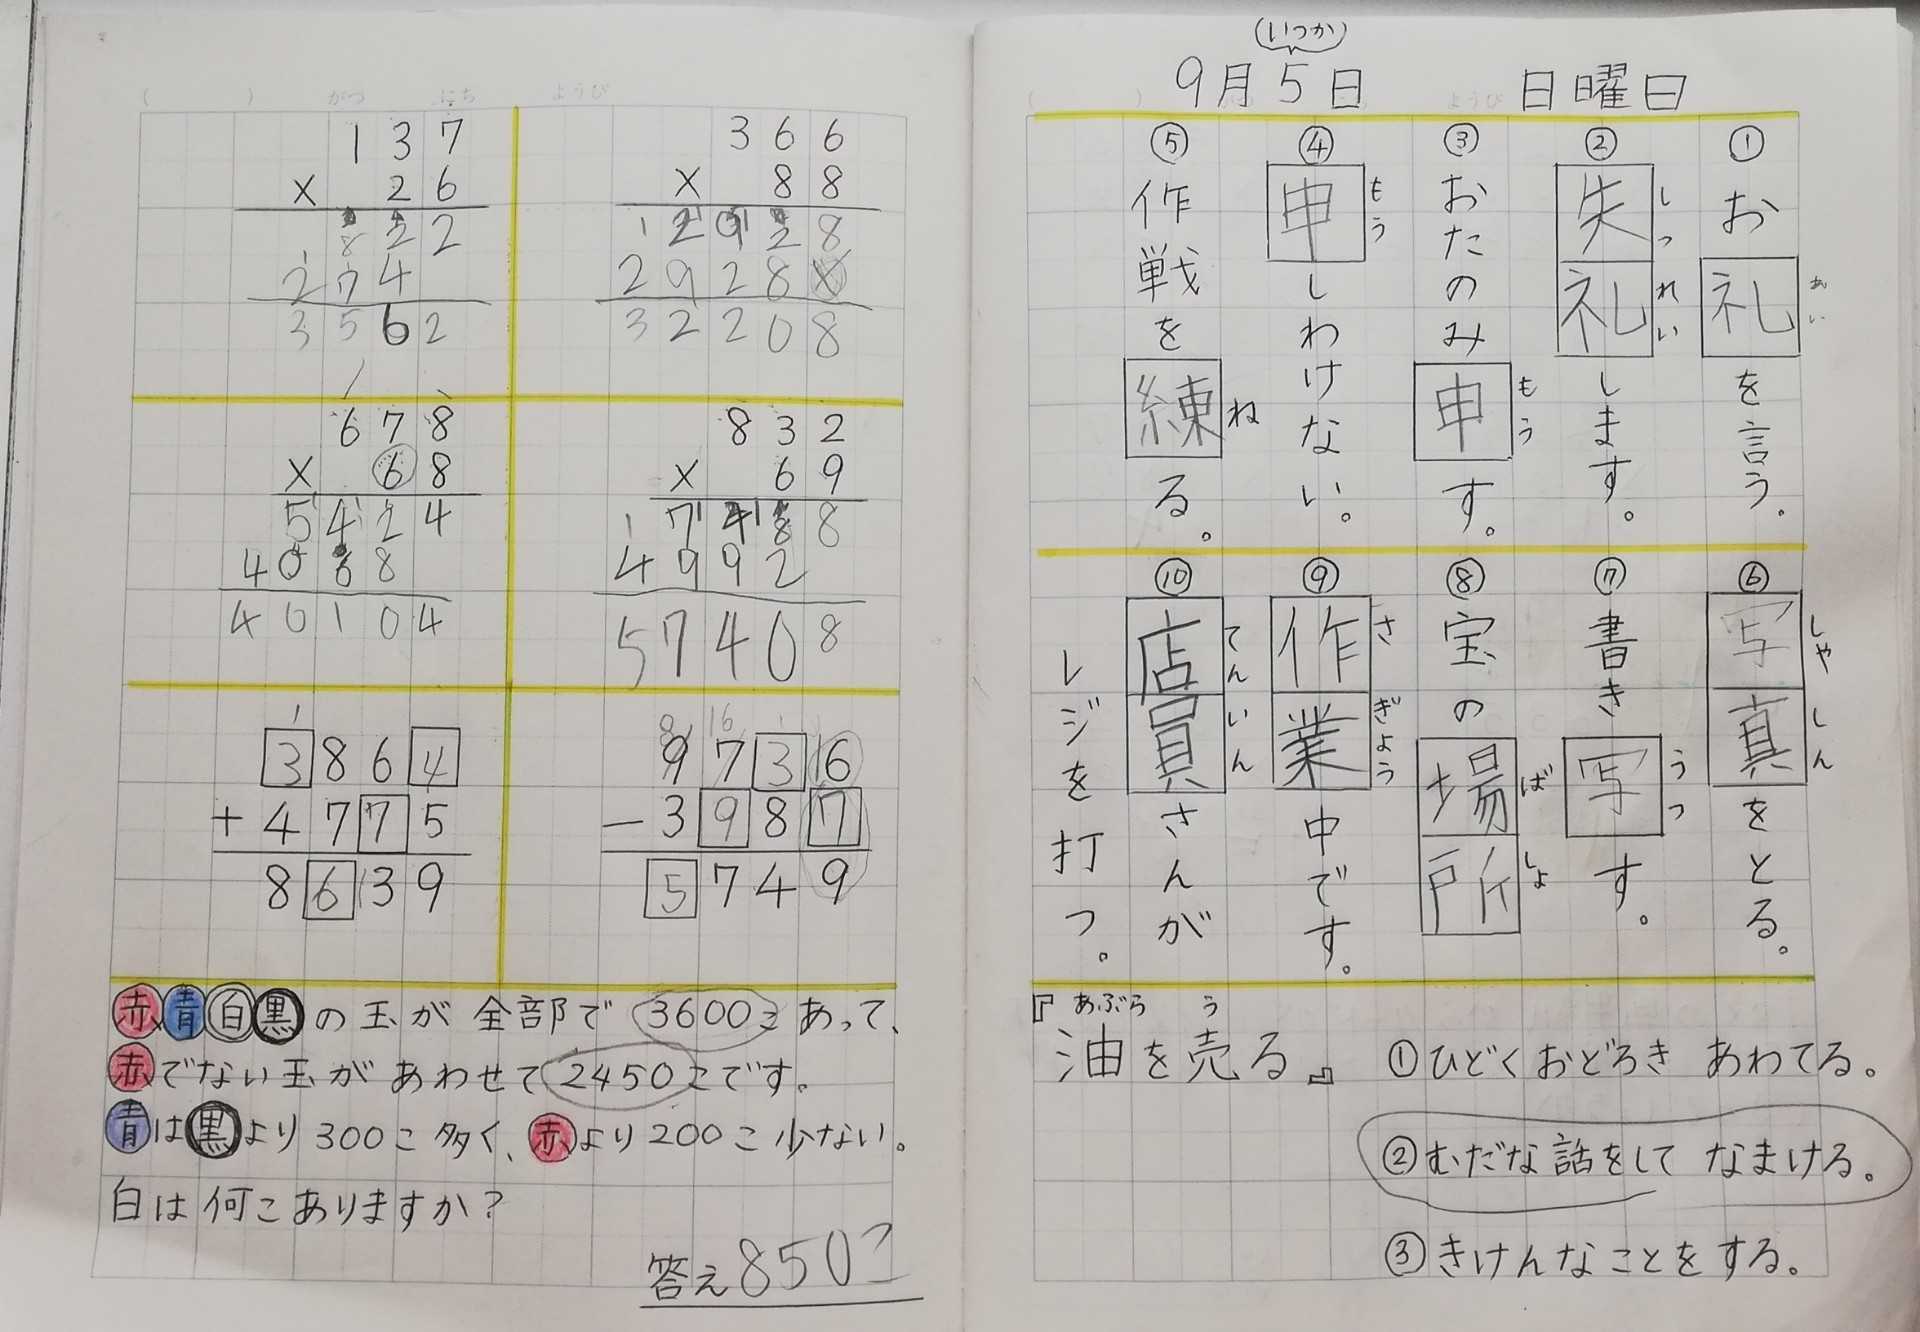 (　　)　がつ　にち　ようび
137
× 26
822
274
3562
366
× 88
2928
2928
32208
678
× 68
5424
4068
40104
832
× 69
7488
4992
57408
3864
+ 4775
8639
9736
- 3987
5749
赤青白黒の玉が全部で3600こあって、
赤でない玉があわせて2450こです。
青は黒より300こ多く、赤より200こ少ない。
白は何こありますか?
答え850こ
(いつか)
9月5日　日曜日
①お礼を言う。
②失礼します。
しつれい
③おたのみ申す。
もう
④申しわけない。
もう
⑤作戦を練る。
ね
⑥写真をとる。
しゃしん
⑦書き写す。
うつ
⑧宝の場所
ばしょ
⑨作業中です。
さぎょう
⑩店員さんが
てんいん
レジを打つ。
あぶら　う
『油を売る』
①ひどくおどろき あわてる。
②むだな話をして なまける。
③きけんなことをする。